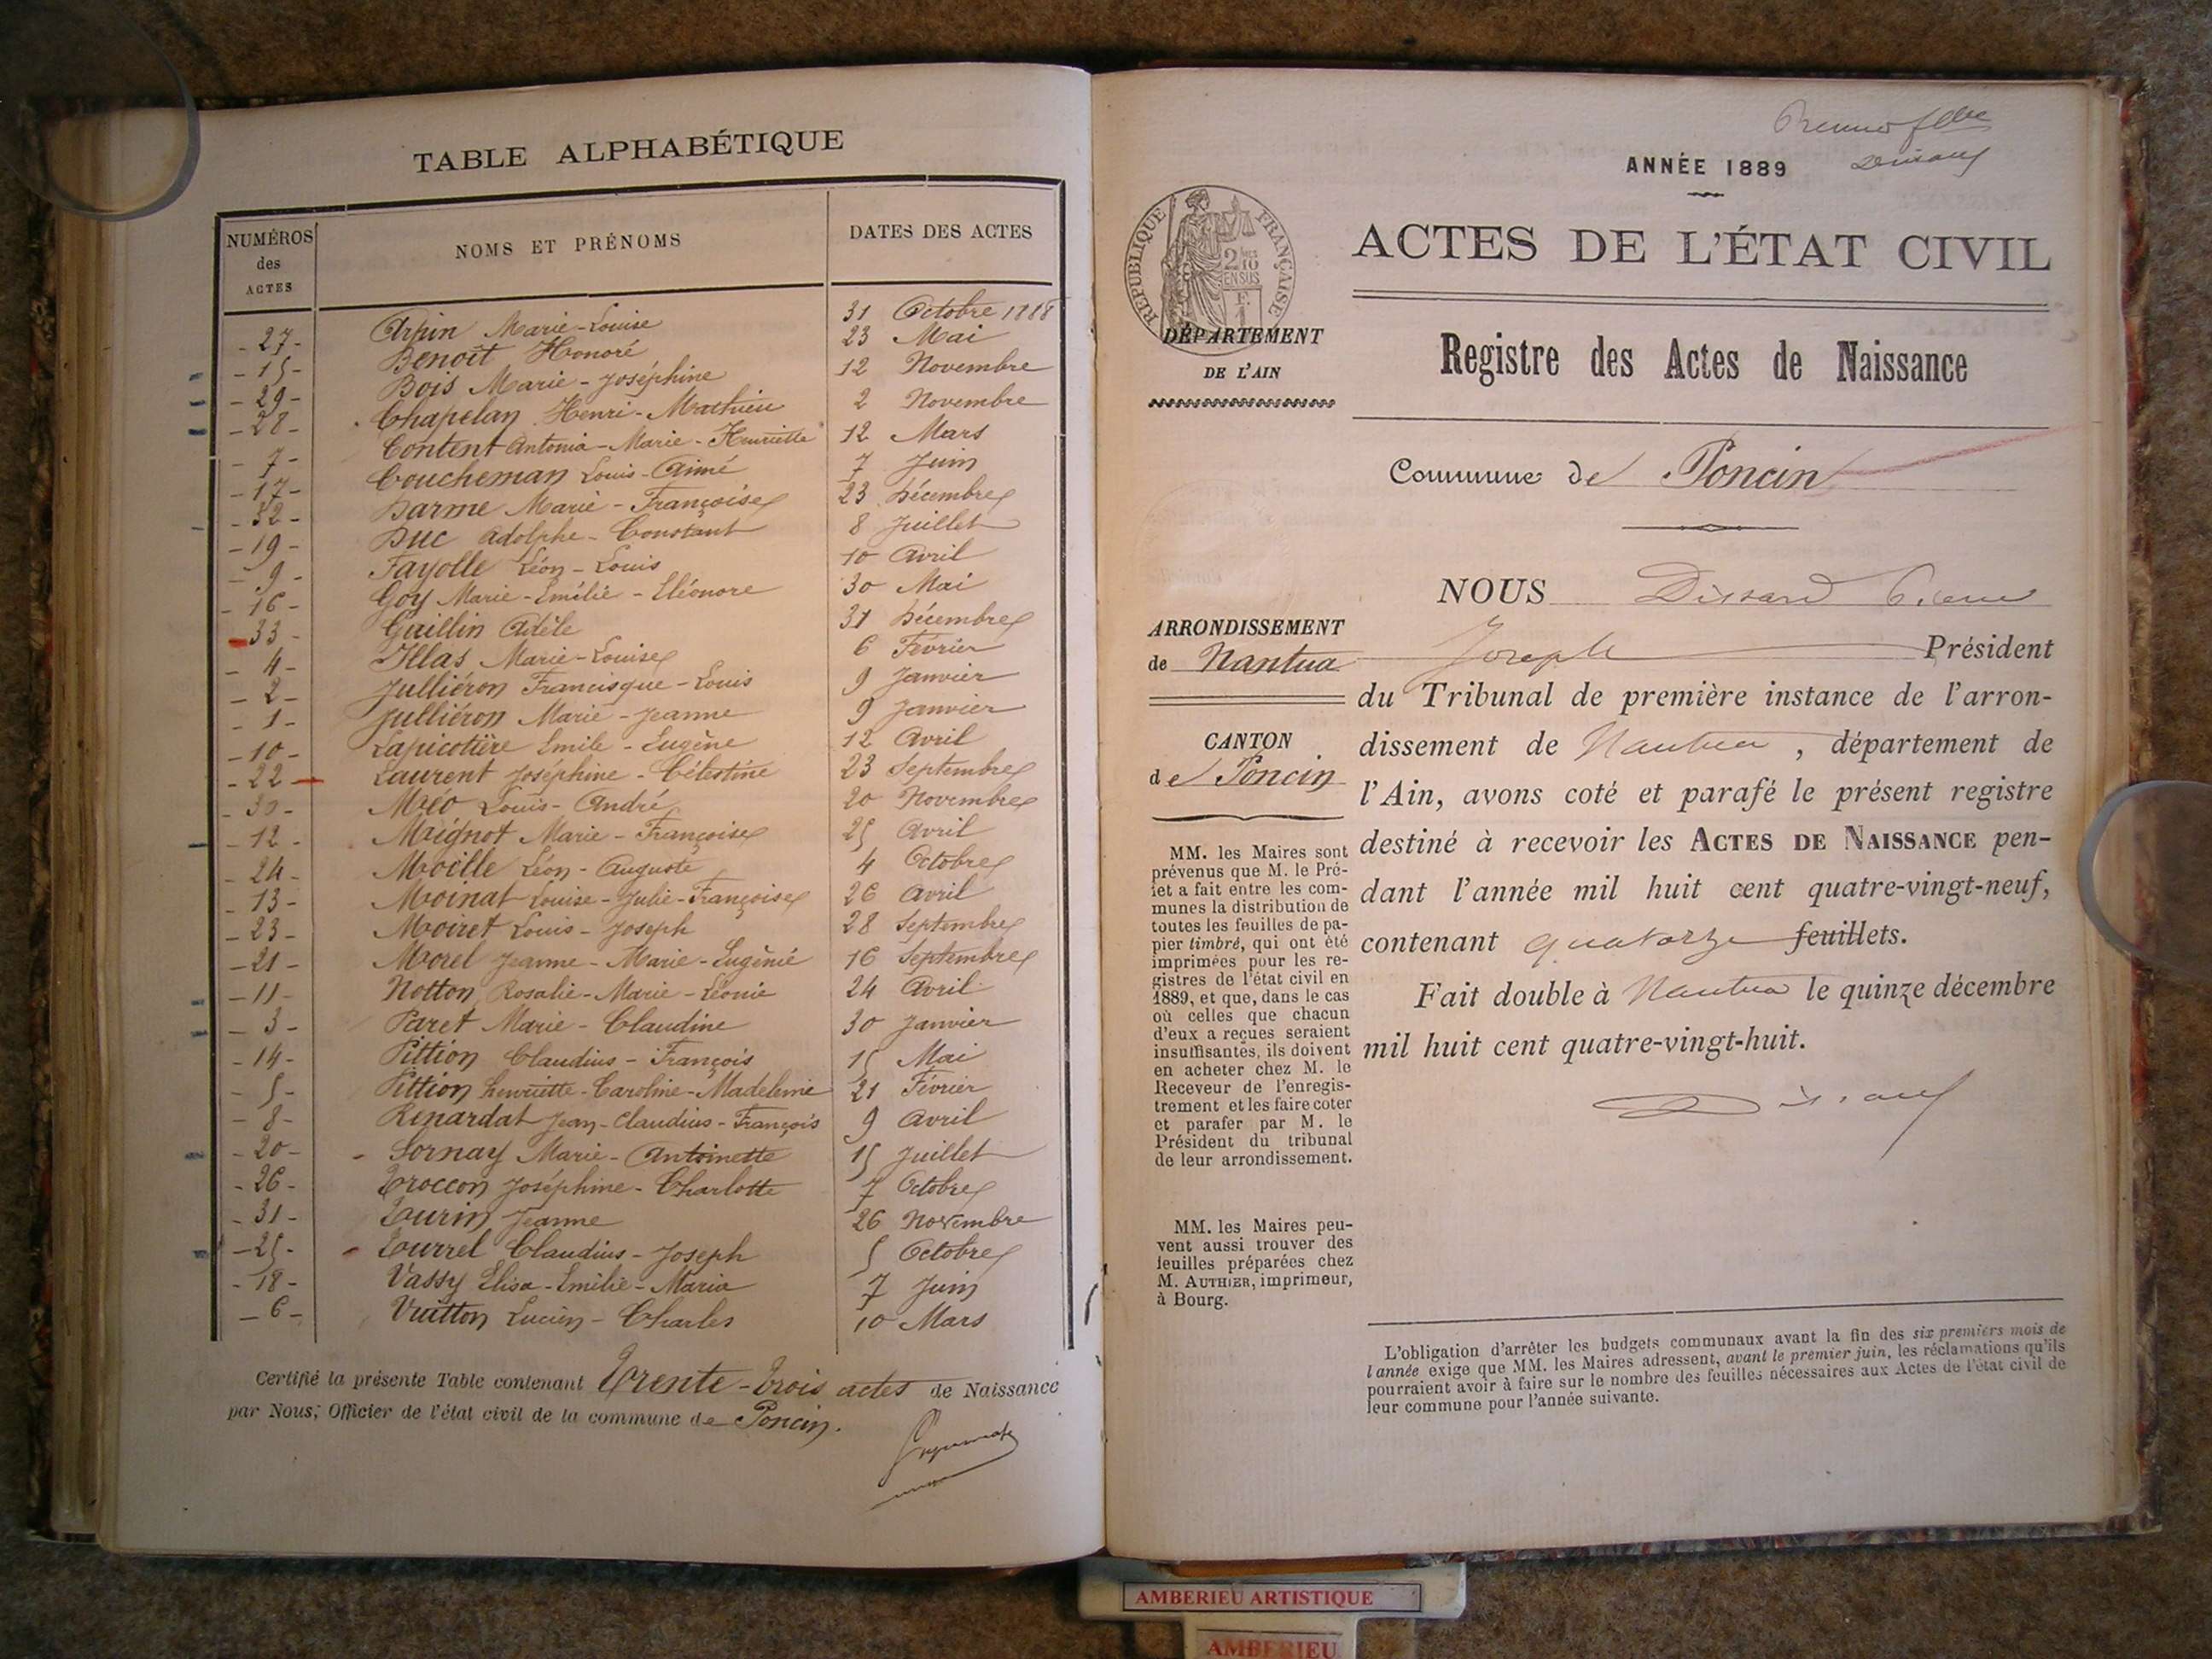 TABLE ALPHABÉTIQUE
NUMÉROS des ACTES
NOMS ET PRÉNOMS
DATES DES ACTES
- 27 - Arpin Marie-Louise 31 Octobre 1888
- 15 - Benoît Honoré 23 Mai
- 29 - Bois Marie-Joséphine 12 Novembre
- 28 - Chapelan Henri-Mathieu 2 Novembre
- 7 - Content Antonia-Marie-Henriette 12 Mars
- 17 - Coucheman Louis-Aimé 7 Juin
- 32 - Darme Marie-Françoise 23 Décembre
- 19 - Duc Adolphe-Constant 8 Juillet
- 9 - Fayolle Léon-Louis 10 Avril
- 16 - Goy Marie-Emélie-Eléonore 30 Mai
- 33 - Guillin Adèle 31 Décembre
- 4 - Illas Marie-Louise 6 Février
- 2 - Julliéron Francisque-Louis 9 Janvier
- 1 - Julliéron Marie-Jeanne 9 Janvier
- 10 - Lapicotière Emile-Eugène 12 Avril
- 22 - Laurent Joséphine-Célestine 23 Septembre
- 30 - Méo Louis-André 20 Novembre
- 12 - Mignot Marie-Françoise 25 Avril
- 24 - Moille Léon-Auguste 4 Octobre
- 13 - Moinat Louise-Julie-Françoise 26 Avril
- 23 - Moiret Louis-Joseph 28 Septembre
- 21 - Morel Jeanne-Marie-Eugènie 16 Septembre
- 11 - Notton Rosalie-Marie-Léonie 24 Avril
- 3 - Paret Marie-Claudine 30 Janvier
- 14 - Pittion Claudius-François 15 Mai
- 5 - Pittion Henriette-Caroline-Madeleine 21 Février
- 8 - Renardat Jean-Claudius-François 9 Avril
- 20 - Sornay Marie-Antoinette 15 Juillet
- 26 - Troccon Joséphine-Charlotte 7 Octobre
- 31 - Tourin Jeanne 26 Novembre
- 25 - Tourrel Claudius-Joseph 5 Octobre
- 18 - Vassy Elisa-Emélie-Maria 7 Juin
- 6 - Vuitton Lucien-Charles 10 Mars
Certifié la présente Table contenant Trente-trois actes de Naissance
par Nous, Officier de l'état civil de la commune de Poncin.
ANNÉE 1889
RÉPUBLIQUE FRANÇAISE
ACTES DE L'ÉTAT CIVIL
DÉPARTEMENT
DE L'AIN
Registre des Actes de Naissance
Commune de Poncin
ARRONDISSEMENT
de Nantua
CANTON
de Poncin
MM. les Maires sont
prévenus que M. le Pré-
fet a fait entre les com-
munes la distribution de
toutes les feuilles de pa-
pier timbré, qui ont été
imprimées pour les re-
gistres de l'état civil en
1889, et que, dans le cas
où celles que chacun
d'eux a reçues seraient
insuffisantes, ils doivent
en acheter chez M. le
Receveur de l'enregis-
trement et les faire coter
et parafer par M. le
Président du tribunal
de leur arrondissement.
MM. les Maires peu-
vent aussi trouver des
feuilles préparées chez
M. AUTHIER, imprimeur,
à Bourg.
NOUS Dissard
Joseph Président
du Tribunal de première instance de l'arron-
dissement de Nantua, département de
l'Ain, avons coté et parafé le présent registre
destiné à recevoir les ACTES DE NAISSANCE pen-
dant l'année mil huit cent quatre-vingt-neuf,
contenant quatorze feuillets.
Fait double à Nantua le quinze décembre
mil huit cent quatre-vingt-huit.
L'obligation d'arrêter les budgets communaux avant la fin des six premiers mois de
l'année exige que MM. les Maires adressent, avant le premier juin, les réclamations qu'ils
pourraient avoir à faire sur le nombre des feuilles nécessaires aux Actes de l'état civil de
leur commune pour l'année suivante.
AMBERIEU ARTISTIQUE
AMBERIEU